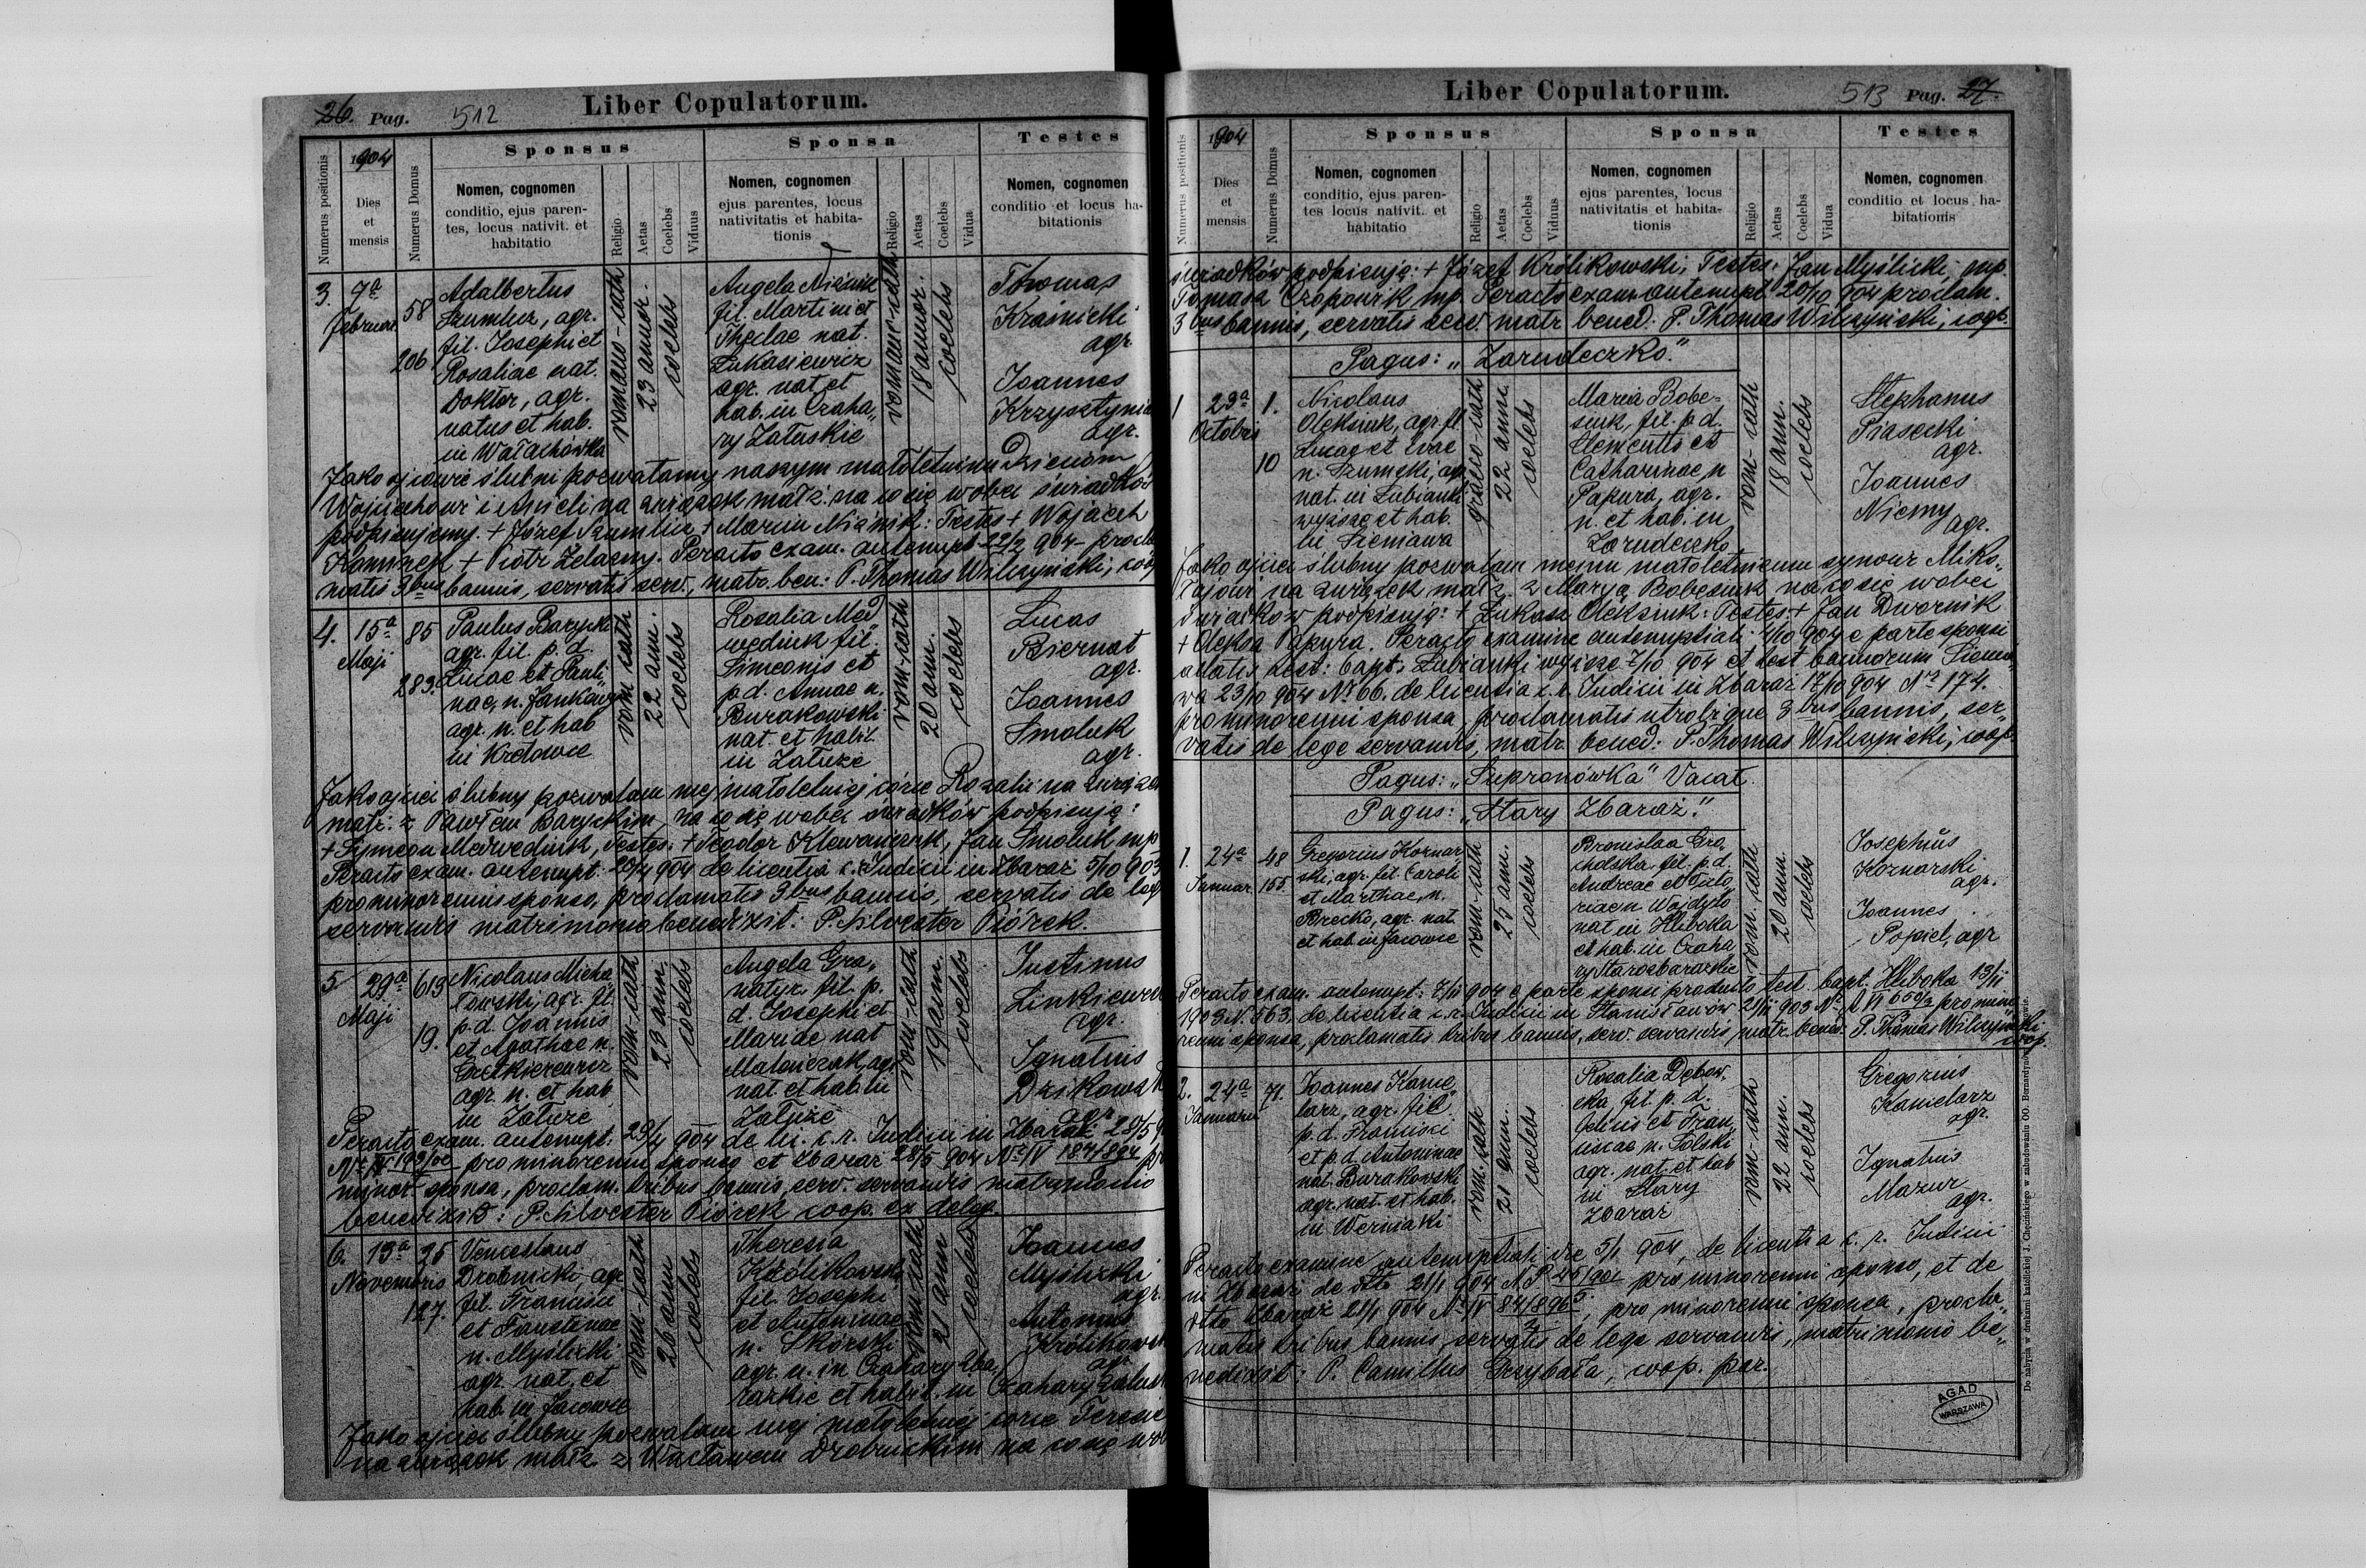 26. Pag. 512
Liber Copulatorum.
Numerus positionis
1904
Dies
et
mensis
Numerus Domus
Sponsus
Nomen, cognomen
conditio, ejus paren-
tes, locus nativit. et
habitatio
Religio
Aetas
Coelebs
Viduus
Sponsa
Nomen, cognomen
ejus parentes, locus
nativitatis et habita-
tionis
Religio
Aetas
Coelebs
Vidua
Testes
Nomen, cognomen
conditio et locus ha-
bitationis
3.
7a
Februar.
58
206
Adalbertus
Szumlicz, agr.
fil. Josephi et
Rosaliae nat.
Doktor, agr.
natus et hab.
in Wałachówka
romano-cath
23 annor.
coelebs
Angela Niźnik
fil. Martini et
Theclae nat.
Łukasiewicz
agr. nat et
hab. in Czaha„
ry Załuskie
romano-cath
18 annor.
coelebs
Thomas
Kraśnicki
agr.
Joannes
agr.
Jako ojcowie ślubni pozwalamy naszym małoletnim dzieciom
Wojciechowi i Anieli na związek małż. na co się wobec świadków
podpisujemy. + Józef Szumlicz + Marcin Niźnik: Testes + Wojciech
+ Piotr Żelazny. Peracto exam. antenupt 22/2 904 procla
matis 3bus bannis, servatis serv., matr. ben: P. Thomas Wilczyński, coop
4.
15a
Maji
85
283.
Paulus Barycki
agr. fil. p. d.
Lucae et Pauli„
nae, n.
agr. n. et hab
in Kretowce
rom cath
22 ann.
coelebs
Rosalia Med„
wediuk fil.
Simeonis et
p. d. Annae n.
Burakowski
nat. et habit.
in Załuże
rom-cath
20 ann.
coelebs
Lucas
Biernat
agr.
Joannes
Smoluk
agr.
Jako ojciec ślubny pozwalam mej małoletniej córce Rozalii na związek
małż. z Pawłem Baryckim, na co się wobec świadków podpisuję:
+ Symeon Medwediuk, Testes: + Teodor Klewańczuk, Jan Smoluk mp
Peracto exam. antenupt: 20/4 904 de licentia c. r. Judicii in Zbaraż 5/10 903
pro minorenni sponso, proclamatis 3bus bannis, servatis de lege
servandis matrimonio benedixit: P. Silvester Piórek.
5
29a
Maji
613
19.
Nicolaus Micha„
łowski, agr. fil.
p. d. Joannis
et Agathae n.
agr. n. et hab
in Załuże
rom-cath
23 ann.
coelebs
Angela Gra„
natyr fil. p.
d. Josephi et
Mariae nat
agr.
nat. et hab. in
Załuże
rom-cath
19 ann.
coelebs
Justinus
Linkiewicz
agr.
Ignatius
Dzikowski
agr.
Peracto exam. antenupt: 23/4 904 de lic. c. r. Judicii in Zbaraż 28/5
pro minorenni sponso et Zbaraż 28/5 904 Nr IV 184/894 pro
minor. sponsa, proclam. tribus bannis, serv. servandis matrimonio
benedixit: P. Silvester Piórek coop. ex deleg.
6.
13a
Novembris
25
127.
Venceslaus
Drobnicki, agr
fil. Francisci
et Faustinae
n. Myślicki
agr. nat. et
hab. in Jacowce
rom-cath
26 ann
coelebs
Theresia
Królikowska
fil. Josephi
et Antoninae
n. Skórski
agr. n. in Czahary Zba„
razkie et habit. in Czahary Załuskie
rom-cath
21 ann
coelebs
Joannes
Myślicki
agr.
Antonius
Królikowski
agr.
Jako ojciec ślubny pozwalam mej małoletniej córce Teresie
na związek małż. z Wacławem Drobnickim na co się wobec
Liber Copulatorum.
513 Pag. 27.
Numerus positionis
1904
Dies
et
mensis
Numerus Domus
Sponsus
Nomen, cognomen
conditio, ejus paren-
tes locus nativit. et
habitatio
Religio
Aetas
Coelebs
Viduus
Sponsa
Nomen, cognomen
ejus parentes, locus
nativitatis et habita-
tionis
Religio
Aetas
Coelebs
Vidua
Testes
Nomen, cognomen
conditio et locus ha-
bitationis
świadków podpisuję: + Józef Królikowski, Testes: Jan Myślicki, mp.
Tomasz Czopowik mp. Peracto exam. antenupt. 20/10 904 proclam.
3bus bannis, servatis serv. matr. bened. P. Thomas Wilczyński, coop.
Pagus: „Zarudeczko."
1
23a
Octobris
1.
10
Nicolaus
Oleksiuk, agr. fil.
Lucae et Evae
n. Szumski, agr.
nat. in Łubianki
wyższe et hab.
in Sieniawa
graeco-cath
22 anni
coelebs
Maria Bobe„
siuk, fil. p. d.
Clementis et
Catharinae n
Papura, agr.
n. et hab. in
Zarudeczko
rom-cath
18 ann.
coelebs
Stephanus
Piasecki
agr.
Joannes
Niemy
agr.
Jako ojciec ślubny pozwalam memu małoletniemu synowi Miko„
łajowi na związek małż. z Maryą Bobesiuk na co się wobec
świadków podpisuję: + Łukasz Oleksiuk: Testes: + Jan Dwornik
+ Oleksa Papura. Peracto examine antenuptiali 2/10 904 e parte sponsi
allatis test: bapt. Łubianki wyższe 7/10 904 et test bannorum Sienia„
wa 23/10 904 Nr 66. de licentia c. r. Judicii in Zbaraż 17/10 904 Nr 174.
pro minorenni sponsa, proclamatis utrobique 3bus bannis, ser„
vatis de lege servandis, matr. bened: P. Thomas Wilczyński, coop.
Pagus: „Supronówka" Vacat.
Pagus: „Stary Zbaraż."
1.
24a
Januar.
48
155.
Gregorius Kornar„
ski, agr. fil. Caroli
et Marthae, n.
Brecko, agr. nat.
et hab. in Jacowce
rom-cath
25 ann.
coelebs
Bronislaa Gro„
cholska fil. p. d.
Andreae et Victo„
riae n Wojdyło
nat in Hleboka
et hab. in Czaha„
ry Starozbarazkie
rom. cath
20 ann.
coelebs
Josephus
Kornarski
agr.
Joannes
Popiel, agr
Peracto exam. antenupt: 7/11 904 e parte sponsi producto test. bapt. Hleboka 13/11
1903 N. 563, de licentia c. r. Judicii in Stanisławów 21/11 903 Nr pro mino„
renni sponsa, proclamatis tribus bannis, serv. servandis matr. bened. P. Thomas Wilczyński
coop.
2.
24a
Januarii
71.
Joannes Kanie„
larz, agr. fil.
p. d. Francisci
et p. d. Antoninae
nat. Burakowski
agr. nat. et hab.
in Werniaki
rom. cath
21 ann.
coelebs
Rosalia Dębow„
ska fil. p. d.
Felicis et Fran„
ciscae n. Solski
agr. nat. et hab
in Stary
Zbaraż
rom-cath
22 ann.
coelebs
Gregorius
Kanielarz
agr.
Ignatius
Mazur
agr.
Peracto examine antenuptiali die 5/1 904, de licentia c. r. Judicii
in Zbaraż de dtto 21/1 904 N. P 45/901 pro minorenni sponso, et de
dtto Zbaraż 21/1 904 Nr IV 84/896, pro minorenni sponsa, procla„
matis tribus bannis, servatis de lege servandis, matrimonio be„
nedixit: P. Camillus Grzybała, coop. par.
AGAD
WARSZAWA
Do nabycia w drukarni katolickiej J. Chęcińskiego w zabudowaniu OO. Bernardynów we Lwowie.